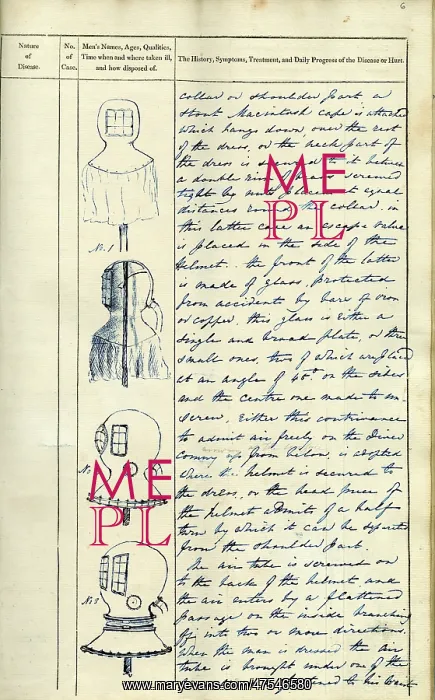 6
Nature of Disease.
No. of Case.
Men's Names, Ages, Qualities, Time when and where taken ill, and how disposed of.
The History, Symptoms, Treatment, and Daily Progress of the Disease or Hurt.
collar or shoulder part a
stout Macintosh cape is attached
which hangs down over the rest
of the dress, or the neck part of
the dress is secured to it between
a double ring of brass screwed
tight by nuts placed at equal
distances round the collar. in
this latter case an escape valve
is placed in the side of the
helmet. the front of the latter
is made of glass, protected
from accidents by bars of iron
or copper, this glass is either a
single and broad plate, or three
small ones, two of which are placed
at an angle of 45° on the sides
and the centre one made to un-
screw. Either this contrivance
to admit air freely on the Diver
coming up from below, is adopted
where the helmet is secured to
the dress, or the head piece of
the helmet admits of a half
turn by which it can be separated
from the shoulder part.
The air tube is screwed on
to the back of the helmet, and
the air enters by a flattened
passage on the inside branching
off into two or more directions.
When the man is dressed the air
tube is brought under one of the
to his waist
No. 1
No
No 3
ME
PL
ME
PL
www.maryevans.com/47546580